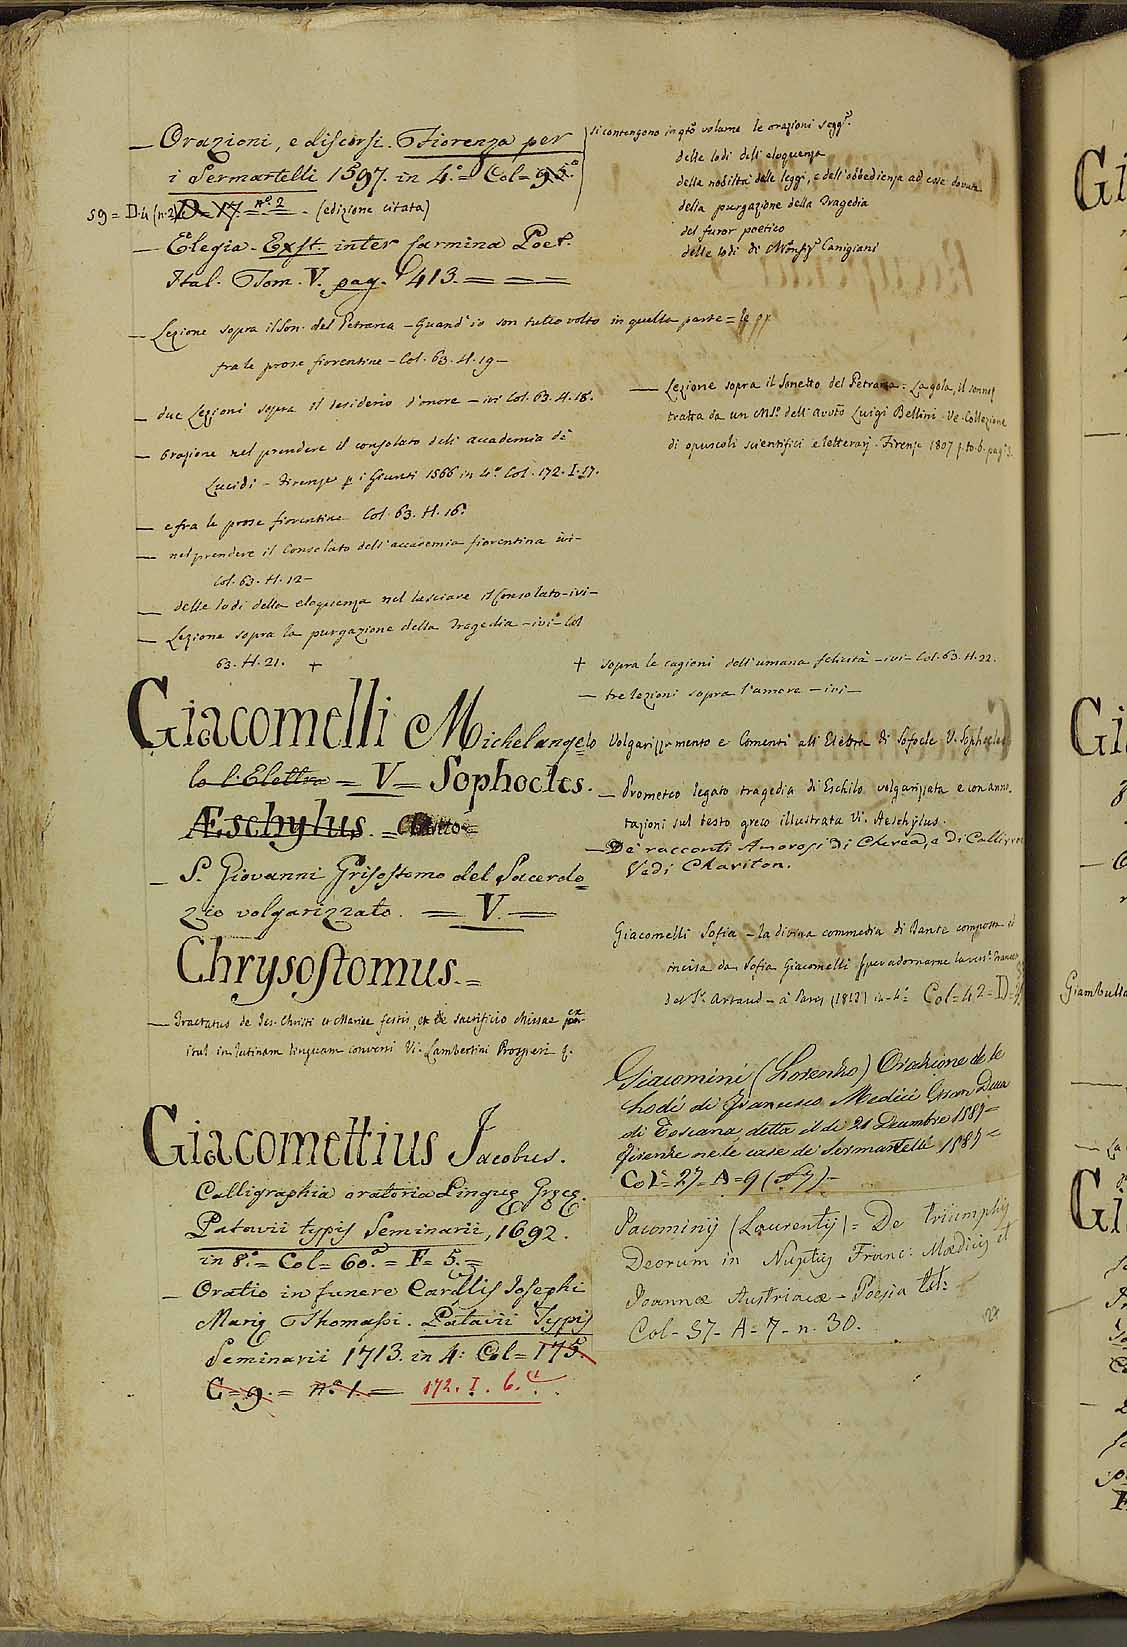 — Orazioni, e discorsi. Fiorenza per
i Sermartelli 1597. in 4.° = Col = 95.
59 = D. 4 (n. 2) D = 17. = n.° 2 - (edizione citata)
— Elegia. Exst. inter Carmina Poet.
Ital. Tom. V. pag. 413. = — —
— Lezione sopra il Son. del Petrarca — Quand' io son tutto volto in quella parte =
fra le prose fiorentine — Col. 63. H. 19 —
— due Lezioni sopra il desiderio d'onore — ivi Col. 63. H. 18.
— Orazione nel prendere il consolato dell' accademia de
Lucidi — Firenze p i Giunti 1566 in 4.° Col. 172. I. 17.
— e fra le prose fiorentine Col. 63. H. 16.
— nel prendere il Consolato dell' accademia fiorentina ivi —
Col. 63. H. 12 —
— delle lodi della eloquenza nel lasciare il Consolato — ivi —
— Lezione sopra la purgazione della Tragedia — ivi — Col
63. H. 21. +
Giacomelli Michelangelo
lo l'Elettra = V = Sophocles.
Æschylus. =
— S. Giovanni Grisostomo del Sacerdo=
zio volgarizzato. = V. =
Chrysostomus. =
— Tractatus de Jes. Christi et Mariae festis, et de sacrificio Missae
in latinam linguam conversi Vi. Lambertini Prosperi
Giacomettius Jacobus.
Calligraphia oratoria Linguę Gręcę.
Patavii typis Seminarii, 1692.
in 8.° = Col = 60. = F = 5. =
— Oratio in funere Cardlis Josephi
Marię Thomasi. Patavii Typis
Seminarii 1713. in 4: Col = 175.
C = 9. = n.° 1. = 172. I. 6.
si contengono in qto volume le orazioni segg.
delle lodi dell' eloquenza
della nobiltà delle leggi, e dell' obbedienza ad esse dovuta
della purgazione della Tragedia
del furor poetico
delle lodi di Monsig.r Canigiani
— Lezione sopra il Sonetto del Petrarca: La gola, il sonno
tratta da un MS. dell' avvto Luigi Bellini. Ve. Collezione
di opuscoli scientifici e letterarj. Firenze 1807
+ sopra le cagioni dell' umana felicità — ivi — Col. 63. H. 22.
— tre lezioni sopra l'amore — ivi —
Volgarizzamento e Comenti all' Elettra di Sofocle V. Sophocles
— Prometeo legato tragedia di Eschilo volgarizzata e con anno=
tazioni sul testo greco illustrata Vi. Aeschylus.
— De' racconti Amorosi di Cherea, e di Calliroe
Vedi Chariton.
Giacomelli Sofia — la divina commedia di Dante composta ed
incisa da Sofia Giacomelli per adornarne la vers.
del S.r Artaud — à Paris (1813) in-4.° Col = 42 = D =
Giacomini (Lorenzo) Orazione de le
lodi di Francesco Medici Gran Duca
di Toscana, detta il dì 21 Decembre 1587 =
Firenze ne le case de' Sermartelli 1587 =
Col = 27 = A = 9
Jacominij (Laurentij) = De Triumphis
Deorum in Nuptijs Franc: Mædicis et
Joannæ Austriacæ — Poësia lat:
Col - 57 - A = 7 - n. 30.